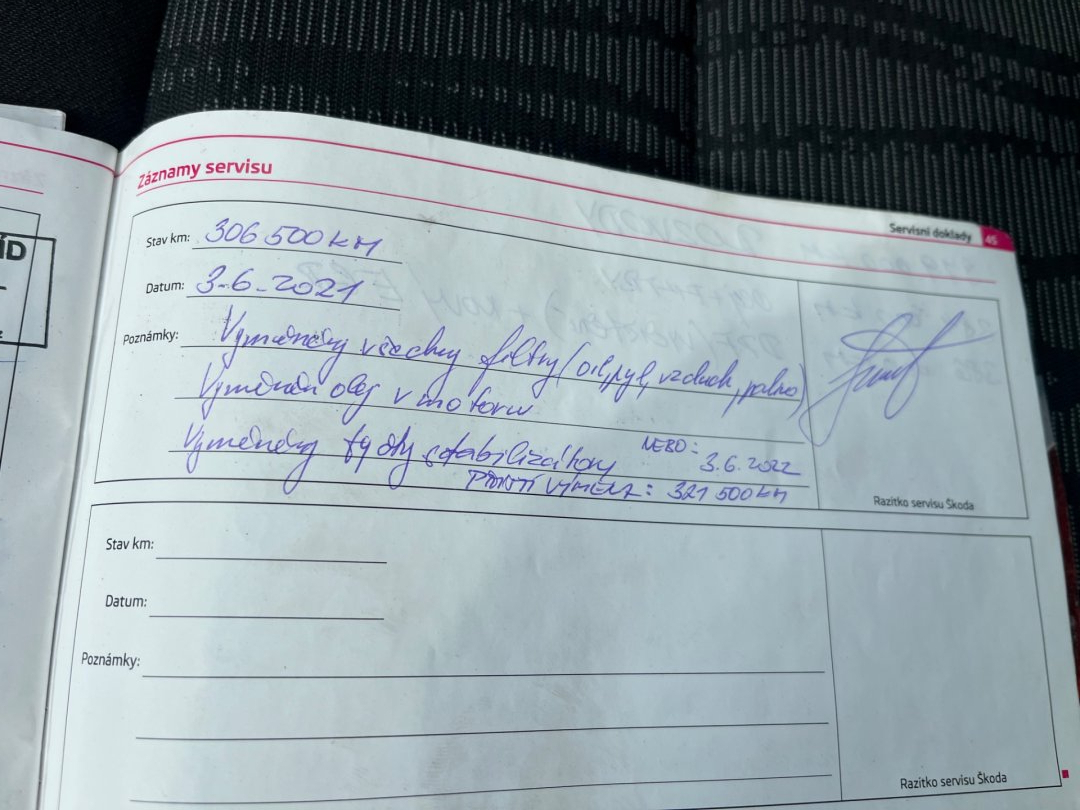 ÍD
Záznamy servisu
Servisní doklady 45
Stav km: 306 500 KM
Datum: 3.6.2021
Poznámky: Vyměněny všechny filtry (oil, pyl, vzduch, palivo)
Vyměněn olej v motoru
Vyměněny tyčky stabilizátoru
NEBO: 3.6.2022
PŘÍŠTÍ VÝMĚNA: 321 500 KM
Razítko servisu Škoda
Stav km:
Datum:
Poznámky:
Razítko servisu Škoda